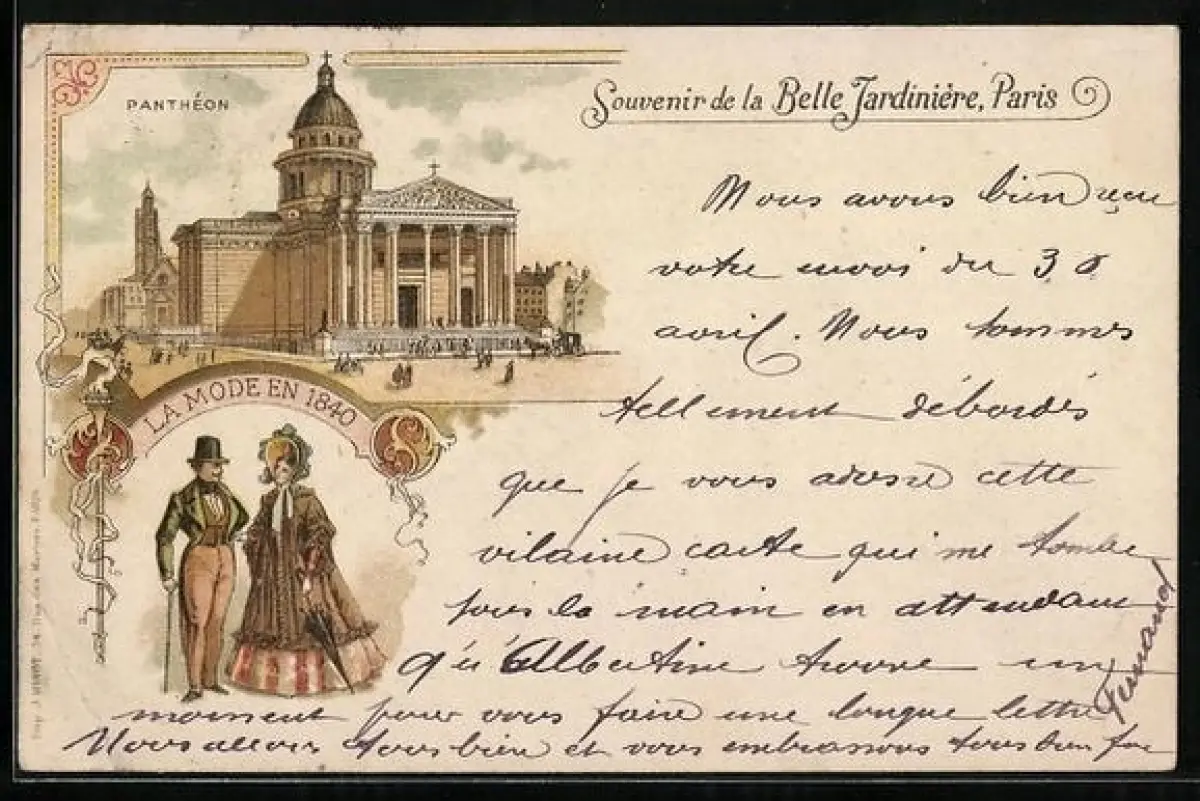 PANTHÉON
Souvenir de la Belle Jardinière, Paris
LA MODE EN 1840
Nous avons bien reçu
votre envoi du 30
avril. Nous sommes
tellement débordés
que je vous adresse cette
vilaine carte qui me tombe
sous la main en attendant
qu'Albertine trouve un
moment pour vous faire une longue lettre
Nous allons tous bien et vous embrassons tous bien fort
Fernand